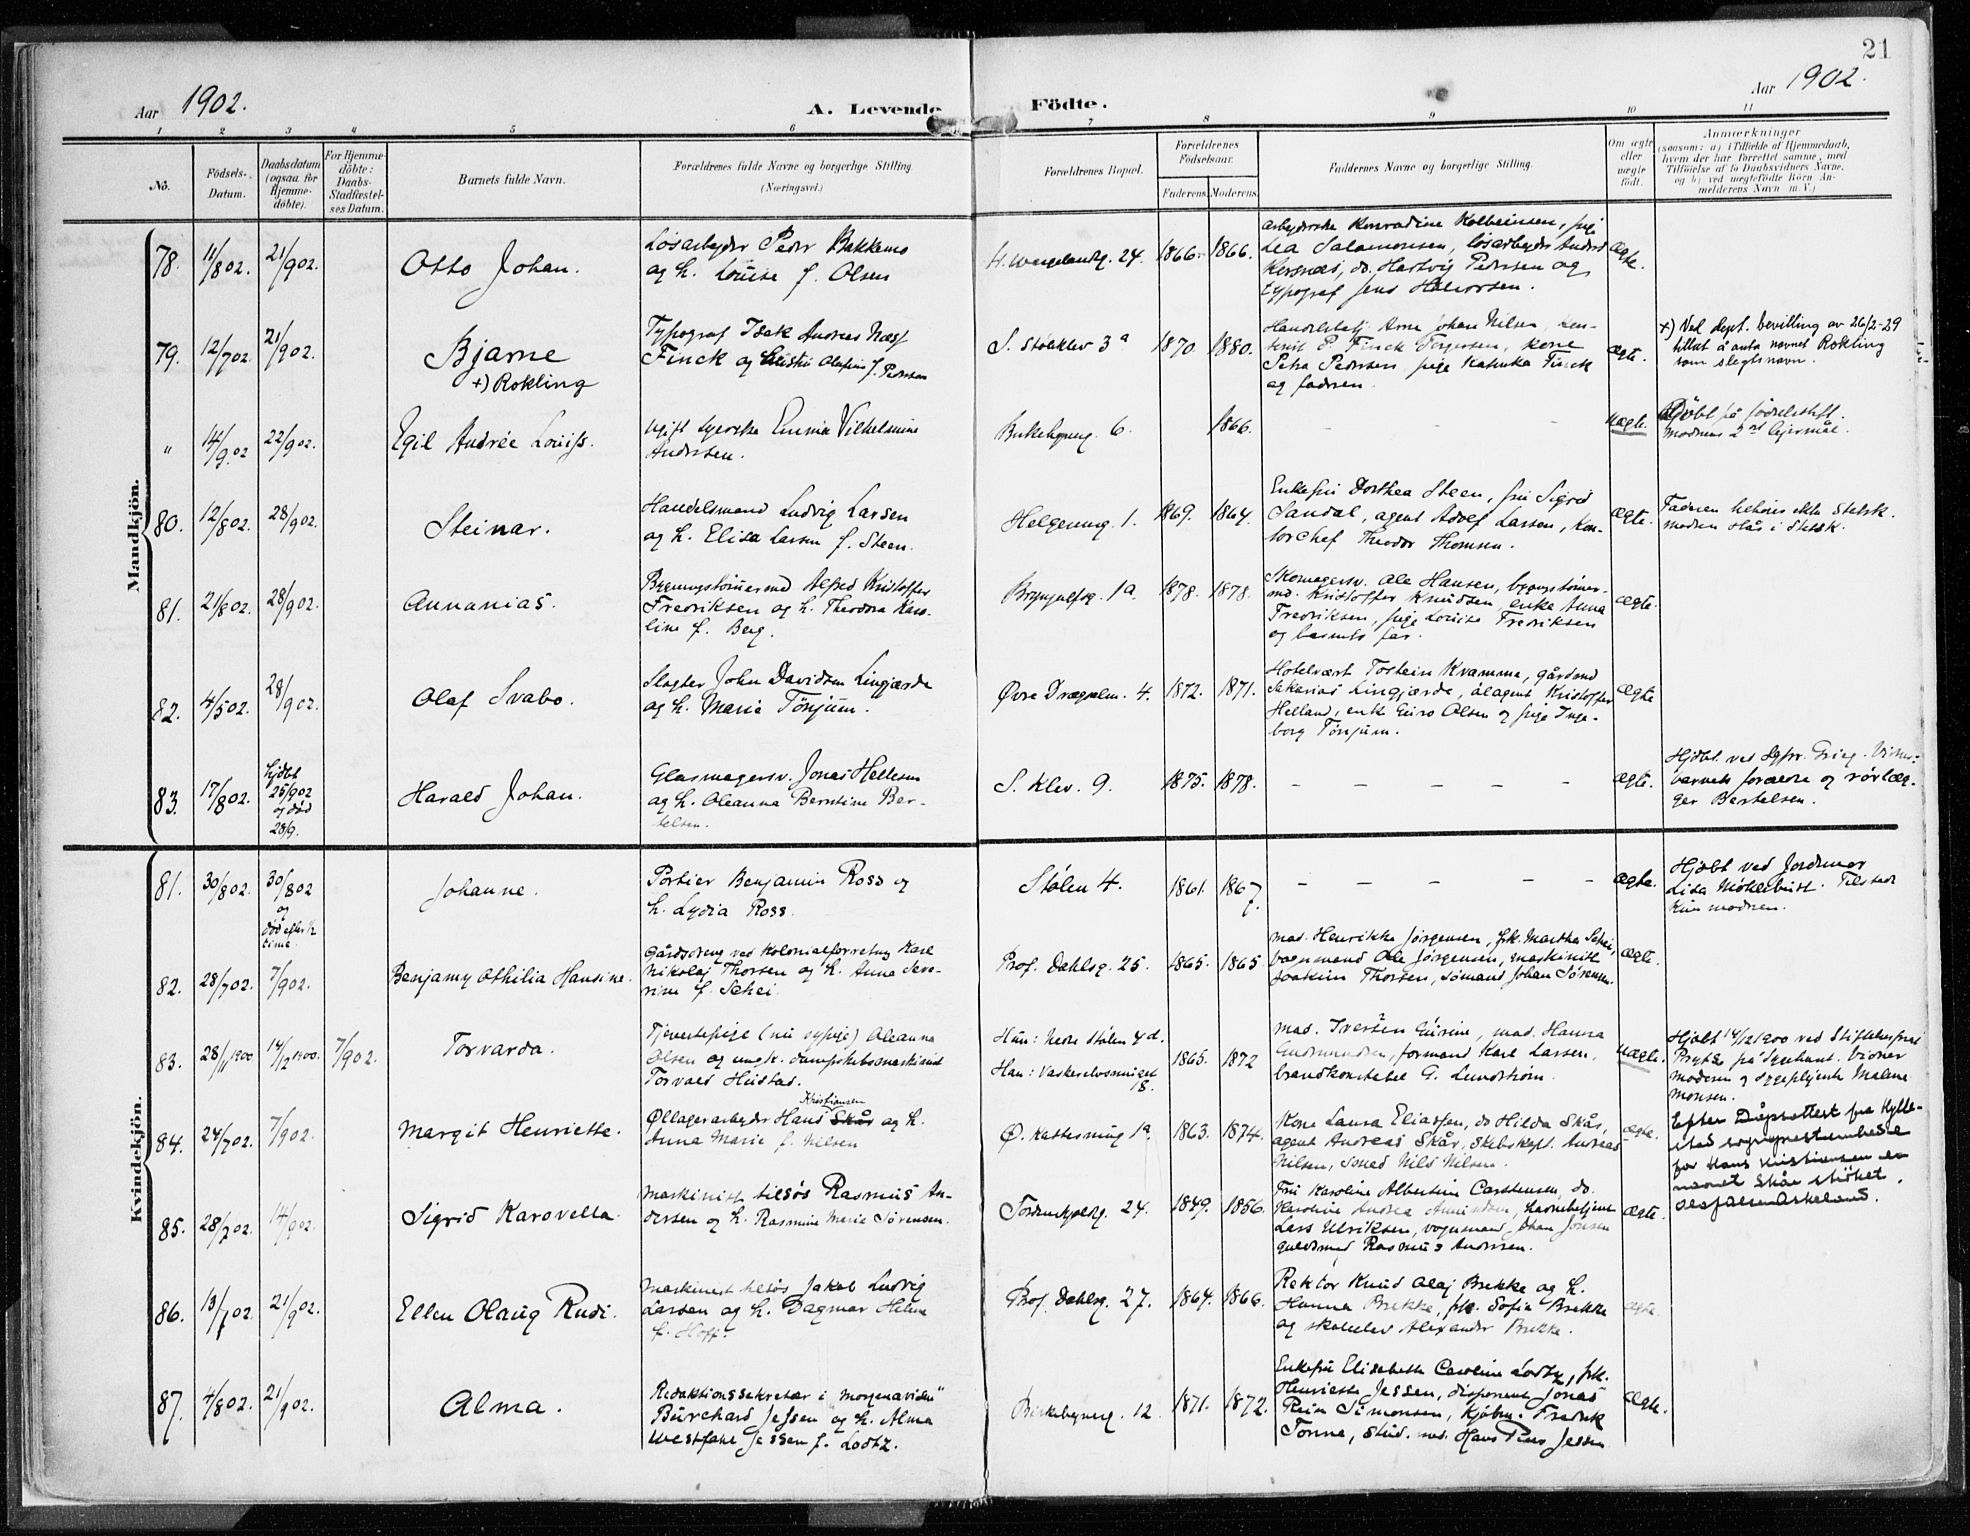 21
Aar 1902.
A. Levende
Födte.
Aar 1902.
1 2 3 4 5 6 7 8 9 10 11
Nô.
Födsels-
Datum.
Daabsdatum
(ogsaa for
Hjemme-
döbte).
For Hjemme-
döbte:
Daabs-
Stadfæstel-
ses Datum.
Barnets fulde Navn.
Forældrenes fulde Navne og borgerlige Stilling.
(Næringsvei.)
Forældrenes Bopæl.
Forældrenes
Födselsaar.
Faderens. Moderens.
Faddernes Navne og borgerlige Stilling.
Om ægte
eller
uægte
födt.
Anmærkninger
(saasom: a) i Tilfælde af Hjemmedaab,
hvem der har forrettet samme, med
Tilföielse af to Daabsvidners Navne,
og b) ved uægtefödte Börn An-
melderens Navn m. V.)
Mandkjön.
78. 11/8 02. 21/9 02.
Otto Johan.
Løsarbeyder Peder Bakkemo
og h. Louise f. Olsen
H. Wergelandsg. 24. 1866. 1866.
arbeyderske Konradine Kolbeinsen, pige
Lea Salamonsen, løsarbeyder Anders
do. Hartvig Pedersen og
typograf Jens Halvorsen.
Ægte.
79. 12/7 02. 21/9 02.
Bjarne
+) Rokling
Typograf Isak Andreas Næss
Finck og Olufine f. Pedersen
S. Stølklev 3a 1870. 1880.
Arne Johan Nilsen,
P. Finck Jørgensen, kone
Petra Pedersen pige Katinka Finck
og faderen.
ægte.
+) Ved dept. bevilling av 26/2-29
tillat å anta navnet Rokling
som slegtsnavn.
" 14/9 02 22/9 02.
Egil Andrée Louiss.
Ugift syerske Emma Vilhelmine
Andersen.
Birkebeynerg. 6. 1866.
Uægte.
Døbt på fødselsstift.
Moderens 2det leiermål.
80. 12/8 02. 28/9 02.
Steinar.
Handelsmand Ludvig Larsen
og h. Elisa Larsen f. Steen.
Helgesensg. 1. 1869. 1864.
Enkefru Dorthea Steen, fru Sigrid
Sandal, agent Adolf Larsen, kon-
torchef Theodor Thomsen.
Ægte.
Faderen tilhører ikke Statsk.
moderen står i Statsk.
81. 21/8 02. 28/9 02.
Annanias.
Bygningstømmermd Alfred Kristoffer
Fredriksen og h. Theodora Karo-
line f. Berg.
Brynjulfsg. 1a. 1878. 1878.
Skomagersv. Ole Hansen, bygngstømmer-
md. Kristoffer Knudsen, enke Anna
Fredriksen, pige Louise Fredriksen
og barnets far.
Ægte.
82. 4/5 02. 28/9 02.
Olaf Svabo.
Slagter John Davidsen Lingjærde
og h. Marie Tönjum.
Øvre Dræggealm. 4. 1872. 1871.
Hotelvært Tostein Kvamme, gårdmd
Sakarias Lingjærde, ølagent Kristoffer
Helland, enke Guro Olsen og pige Inge-
borg Tönjum.
Ægte
83. 17/8 02.
hjdbt
25/9 02
og død
28/9.
Harald Johan.
Glasmagersv. Jonas Hellum
og h. Oleanna Berntine Ber-
telsen.
S. Klev. 9. 1875. 1878.
Ægte.
Hjdbt. ved Sgpr. Grieg. Vidner:
barnets forældre og rørlæg-
ger Bertelsen.
Kvindekjön.
81. 30/8 02.
30/8 02
og
død efter ½
time.
Johanne.
Portier Benjamin Ross og
h. Lydia Ross.
Stølen 4. 1861. 1867.
Ægte.
Hjdbt ved Jordmor
Lisa Tilstede
kun moderen.
82. 28/7 02. 7/9 02.
Benjamy Othilia Hansine.
Gårdsdreng ved kolonialforretng Karl
Nikolaj Thorsen og h. Anna Seve-
rine f. Schei.
Prof. Dahlsg. 25. 1865. 1865.
mad. Henrikke Jørgensen, frk. Martha Schei,
vognmand Ole Jørgensen, maskinist
Joakim Thorsen, sömand Johan Sørensen.
Ægte.
83. 28/11 1900. 14/12 1900. 7/9 02.
Torvarda.
Tjenestepige (nu sypige) Oleanna
Olsen og ungk. dampskibsmaskinist
Torvald Heistad.
Hun: Nedre Stølen 4d.
Han: Vaskerelvsmuget
18.
1865. 1872
mad. Iversen Gurine, mad. Hanna
Gudmundsen, formand Karl Larsen,
brandkonstabel G. Lundstrøm.
Uægte.
Hjdbt 14/12 1900 ved Stiftskapellan
på sygehuset. Vidner
moderen og sygeplejerske Malene
Monsen.
84. 24/7 02. 7/9 02.
Margit Henriette.
Kristiansen
Øllagerarbeyder Hans Skår og h.
Anna Marie f. Nilsen
Ø. Kattesmug 1a. 1863. 1874.
Kone Laura Eliassen, do Hilda Skår,
agent Andreas Skår, skibskapt. Andreas
Nilsen, smed Nils Nilsen.
Ægte.
Efter Dåpsattest fra Hylle-
stad sogneprestembede
for Hans Kristiansen er
navnet Skår strøket.
85. 28/7 02. 14/9 02.
Sigrid Karovella.
Maskinist tilsjøs Rasmus An-
dersen og h. Rasmine Marie Sørensen.
Tordenskjoldsg. 24. 1849. 1856.
Fru Karoline Albertine Carstensen, do.
Karoline Andrea havnebetjent
Lars Ulriksen, vognmand Johan Jonsen
guldsmed Rasmus Andersen.
Ægte.
86. 13/7 02. 21/9 02.
Ellen Olaug Rudi.
Maskinist tilsjøs Jakob Ludvig
Larsen og h. Dagmar Helene
f. Hoff.
Prof. Dahlsg. 27. 1864. 1866.
Rektor Knud Olaj Brekke og h.
Hanna Brekke, frk. Sofie Brekke
og skoleelev Alexander Brekke.
Ægte.
87. 4/8 02. 21/9 02.
Alma.
Redaktionssekretær i „Morgenavisen"
Burchard Jessen og h. Alma
Westfahl Jessen f. Lodtz.
Birkebeynerg. 12. 1871. 1872.
Enkefru Elisabeth Caroline Lodtz, frk.
Henriette Jessen, disponent Jonas
Rein Simonsen, kjøbm. Fredrik
Tonne, stud. med. Hans Jessen
Ægte.